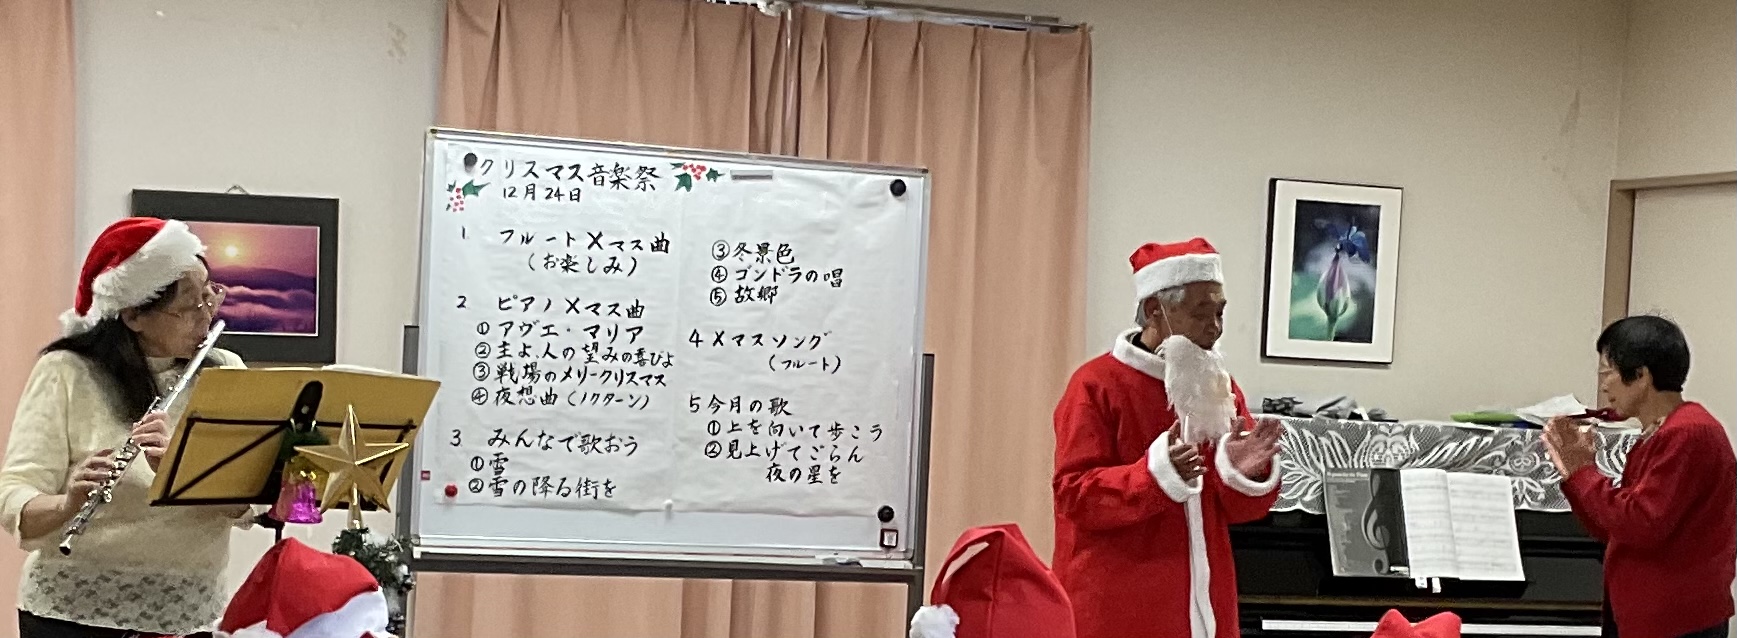 クリスマス音楽祭
12月24日
1 フルートXマス曲
(お楽しみ)
2 ピアノXマス曲
①アヴェ・マリア
②主よ、人の望みの喜びよ
③戦場のメリークリスマス
④夜想曲(ノクターン)
3 みんなで歌おう
①雪
②雪の降る街を
③冬景色
④ゴンドラの唱
⑤故郷
4 Xマスソング
(フルート)
5 今月の歌
①上を向いて歩こう
②見上げてごらん
夜の星を